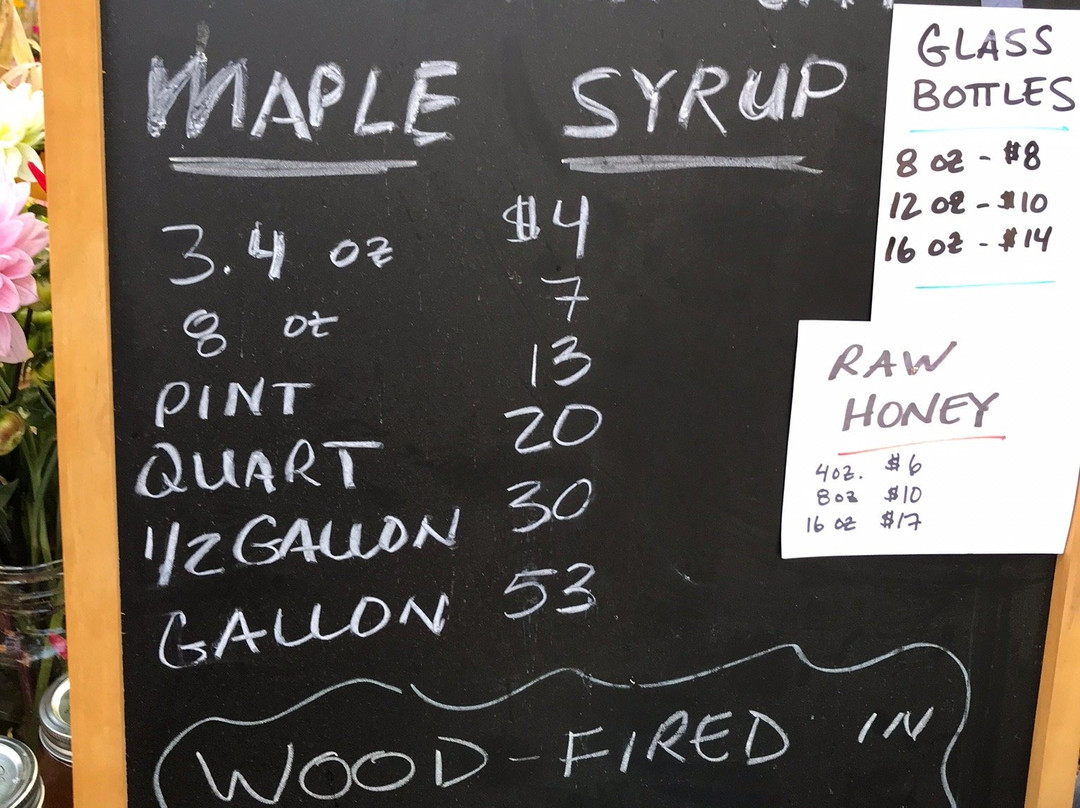 MAPLE SYRUP
3.4 oz $4
8 oz 7
PINT 13
QUART 20
1/2 GALLON 30
GALLON 53
WOOD-FIRED IN
GLASS
BOTTLES
8 oz - $8
12 oz - $10
16 oz - $14
RAW
HONEY
4oz. $6
8oz $10
16 oz $17